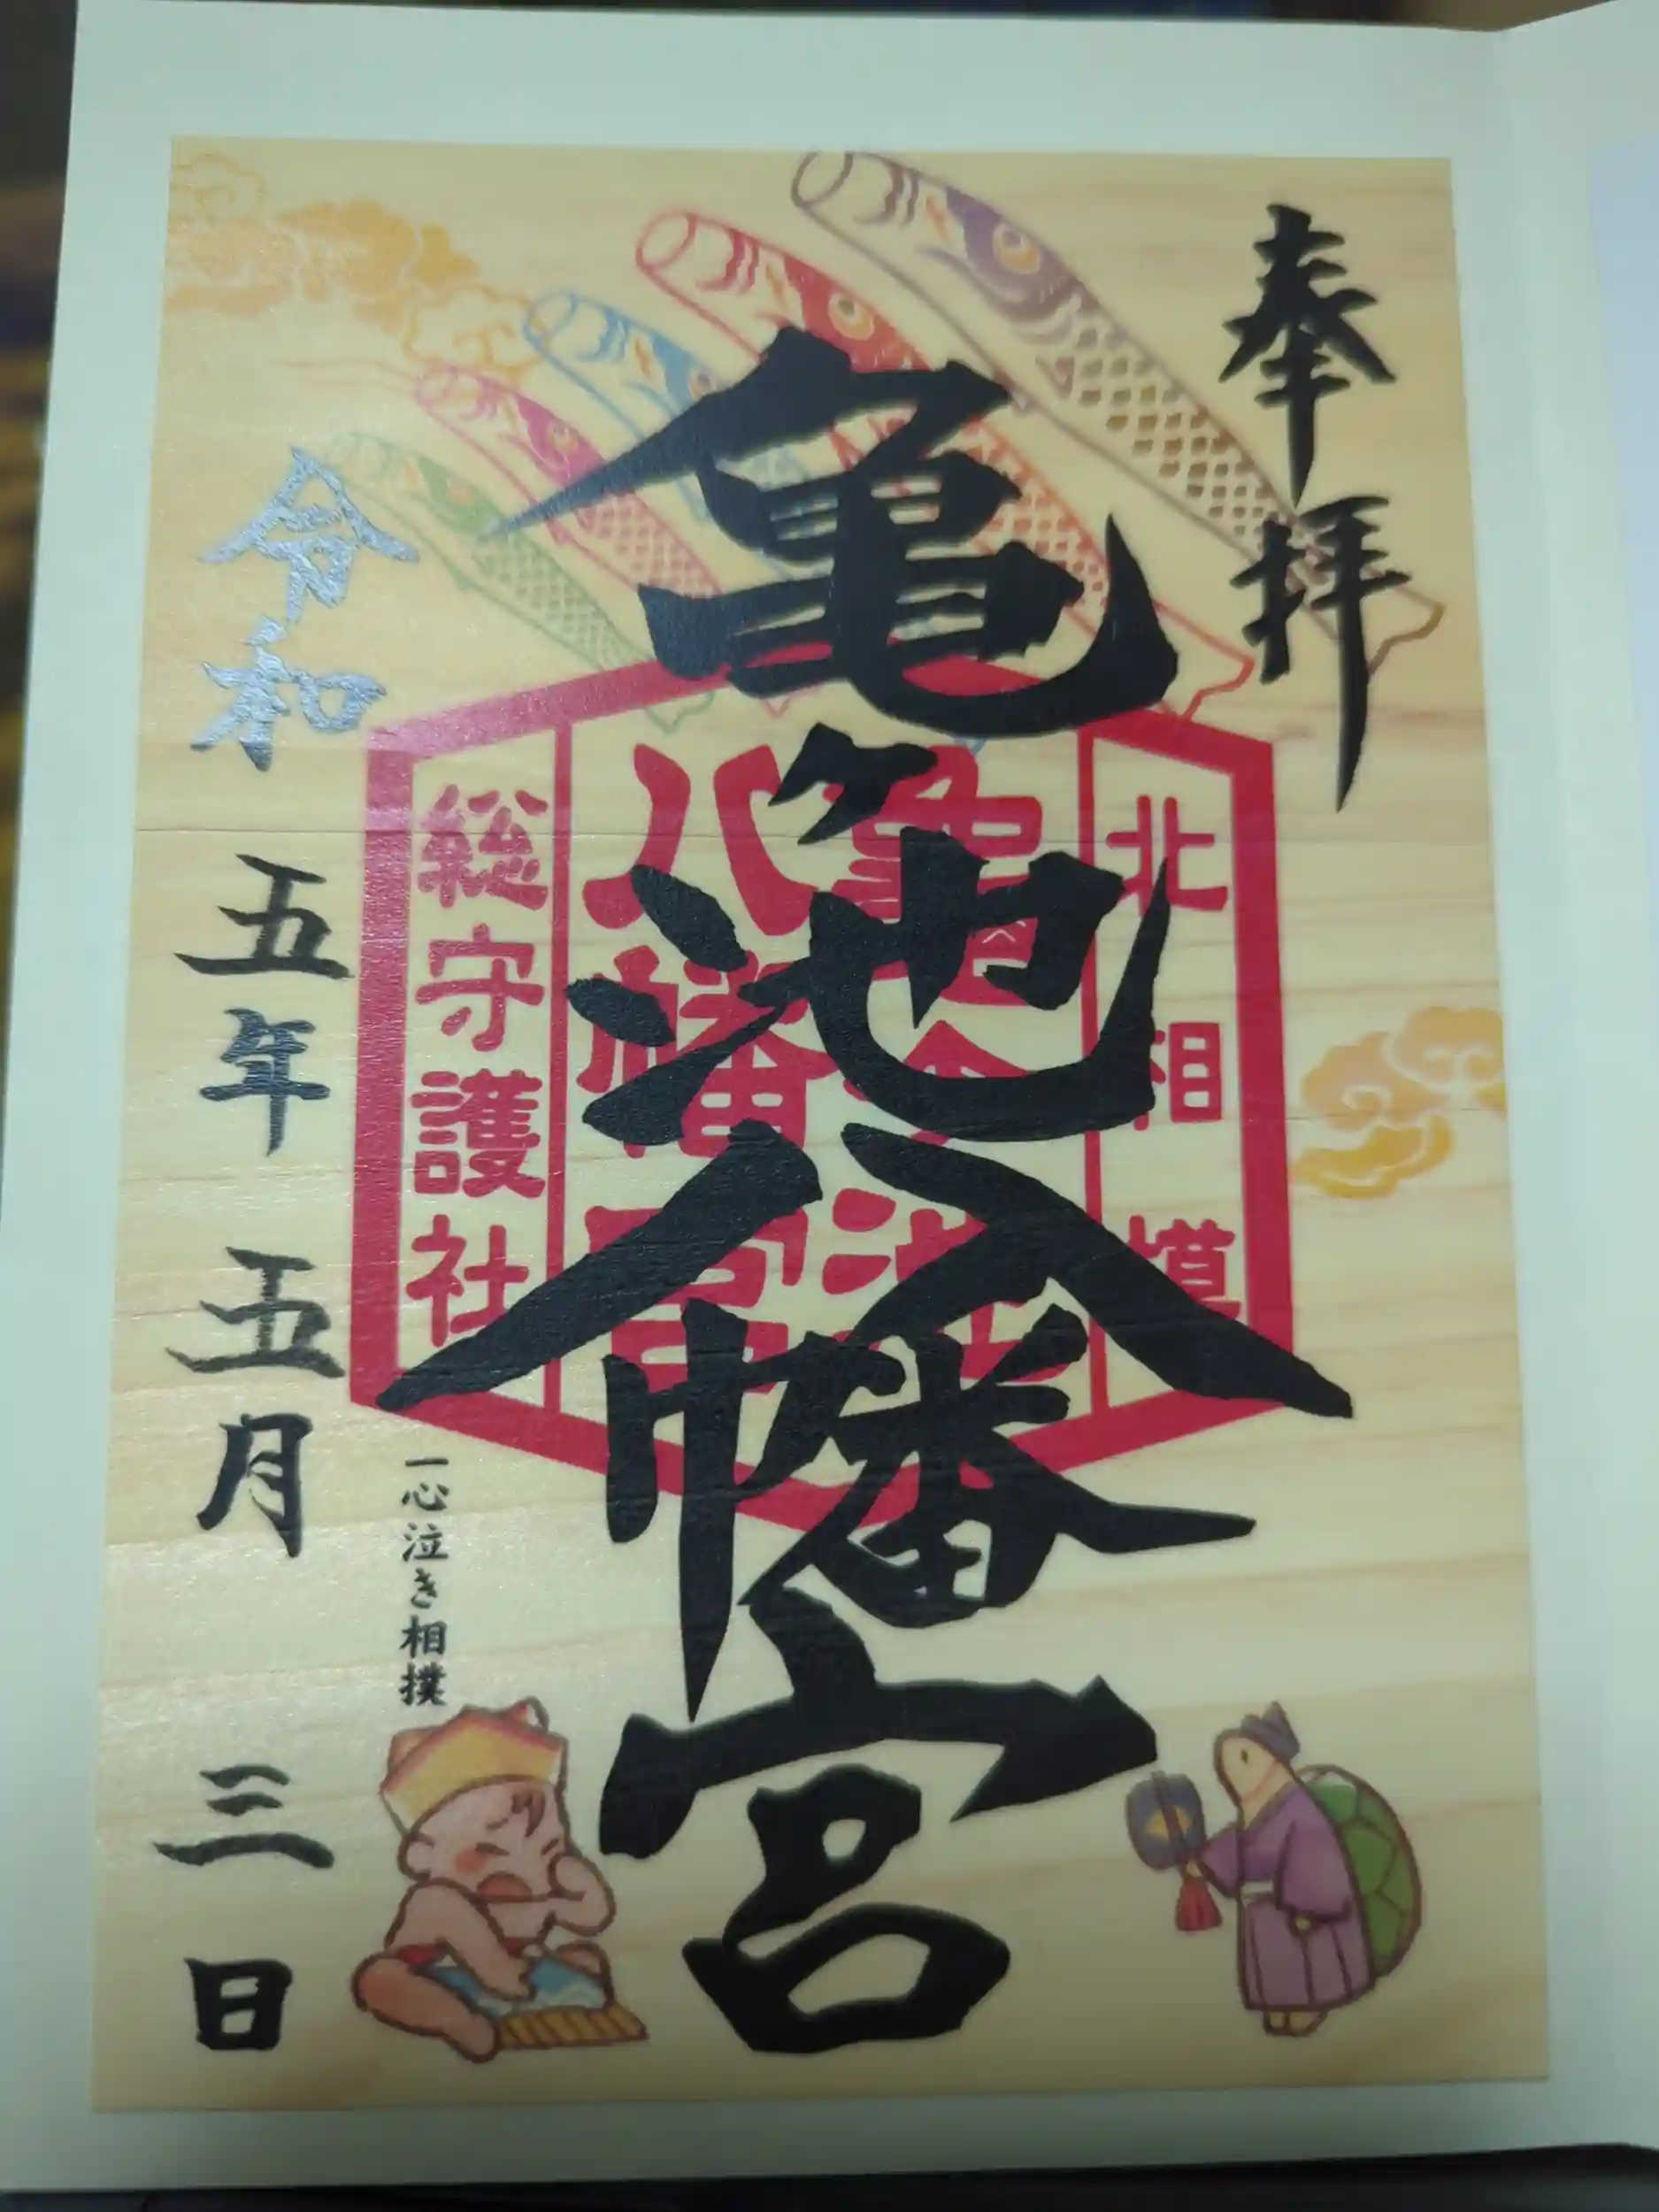 奉拝
亀ヶ池八幡宮
北相模
亀ヶ池
八幡宮
総守護社
一心泣き相撲
令和五年五月三日